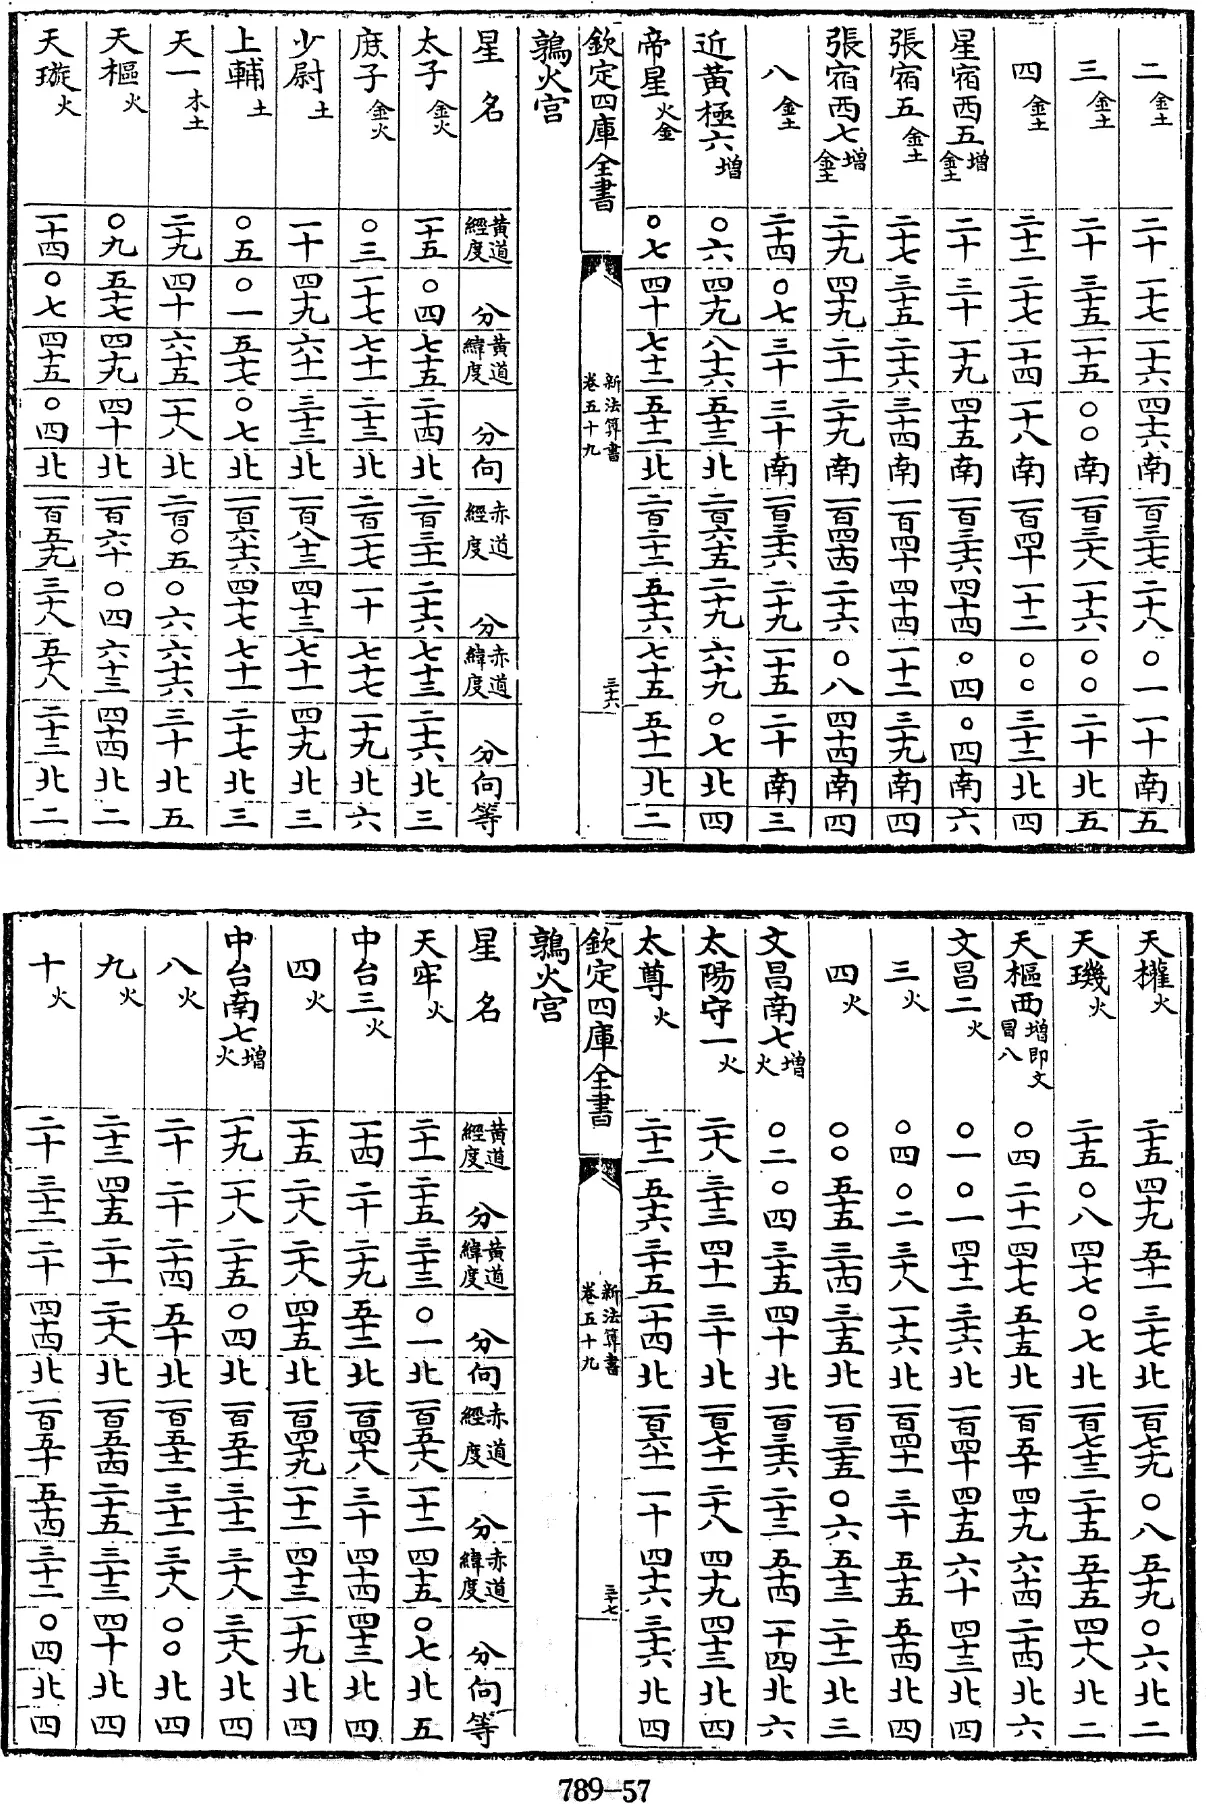 二 金土 二十 一十七 一十六 四十六 南 一百三十七 二十八 〇一 一十 南 五
三 金土 二十 三十五 一十五 〇〇 南 一百三十八 一十六 〇〇 二十 北 五
四 金土 二十二 二十七 一十四 一十八 南 一百四十 一十二 〇〇 三十二 北 四
星宿西五 增金土 二十 三十 一十九 四十五 南 一百三十六 四十四 〇四 〇四 南 六
張宿五 金土 二十七 三十五 二十六 三十四 南 一百四十 四十四 一十二 三十九 南 四
張宿西七 增金土 二十九 四十九 二十一 二十九 南 一百四十四 二十六 〇八 四十四 南 四
八 金土 二十四 〇七 三十 三十 南 一百三十六 二十九 一十五 二十 南 三
近黃極六 增 〇六 四十九 八十六 五十三 北 二百六十五 二十九 六十九 〇七 北 四
帝星 火金 〇七 四十 七十二 五十二 北 二百二十三 五十六 七十五 五十一 北 二
欽定四庫全書 新法算書卷五十九 三十六
鶉火宮
星名 黃道經度 分 黃道緯度 分 向 赤道經度 分 赤道緯度 分 向 等
太子 金火 一十五 〇四 七十五 二十四 北 二百三十一 二十六 七十三 二十六 北 三
庶子 金火 〇三 一十七 七十一 二十三 北 二百二十七 一十 七十七 一十九 北 六
少尉 土 一十 四十九 六十一 三十三 北 一百八十三 四十三 七十一 四十九 北 三
上輔 土 〇五 〇一 五十七 〇七 北 一百六十六 四十七 七十一 二十七 北 三
天一 木土 二十九 四十 六十五 一十八 北 二百〇五 〇六 六十六 三十 北 五
天樞 火 〇九 五十七 四十九 四十 北 一百六十 〇四 六十三 四十四 北 二
天璇 火 一十四 〇七 四十五 〇四 北 一百五十九 三十八 五十八 二十三 北 二
天權 火 二十五 四十九 五十一 三十七 北 一百七十九 〇八 五十九 〇六 北 二
天璣 火 二十五 〇八 四十七 〇七 北 一百七十三 二十五 五十五 四十八 北 二
天樞西 增即文昌八 〇四 二十一 四十七 五十五 北 一百五十 四十九 六十四 二十四 北 六
文昌二 火 〇一 〇一 四十二 三十六 北 一百四十 四十五 六十 四十三 北 四
三 火 〇四 〇二 三十八 一十六 北 一百四十一 三十 五十五 五十四 北 四
四 火 〇〇 五十五 三十四 三十五 北 一百三十五 〇六 五十三 二十二 北 三
文昌南七 增火 〇二 〇四 三十五 四十 北 一百三十六 二十三 五十四 一十四 北 六
太陽守一 火 二十八 三十三 四十一 三十 北 一百七十一 二十八 四十九 四十三 北 四
太尊 火 二十二 五十六 三十五 一十四 北 一百六十一 一十 四十六 三十六 北 四
欽定四庫全書 新法算書卷五十九 三十七
鶉火宮
星名 黃道經度 分 黃道緯度 分 向 赤道經度 分 赤道緯度 分 向 等
天牢 火 二十一 二十五 三十三 〇一 北 一百五十八 一十二 四十五 〇七 北 五
中台三 火 一十四 二十 二十九 五十二 北 一百四十八 三十 四十四 四十三 北 四
四 火 一十五 二十八 二十八 四十五 北 一百四十九 一十二 四十三 一十九 北 四
中台南七 增火 一十九 一十八 二十五 〇四 北 一百五十一 三十二 三十八 三十八 北 四
八 火 二十 二十 二十四 五十 北 一百五十二 三十二 三十八 〇〇 北 四
九 火 二十三 四十五 二十一 二十八 北 一百五十四 二十五 三十三 四十 北 四
十 火 二十 三十二 二十 四十四 北 一百五十 五十四 三十二 〇四 北 四
789—57